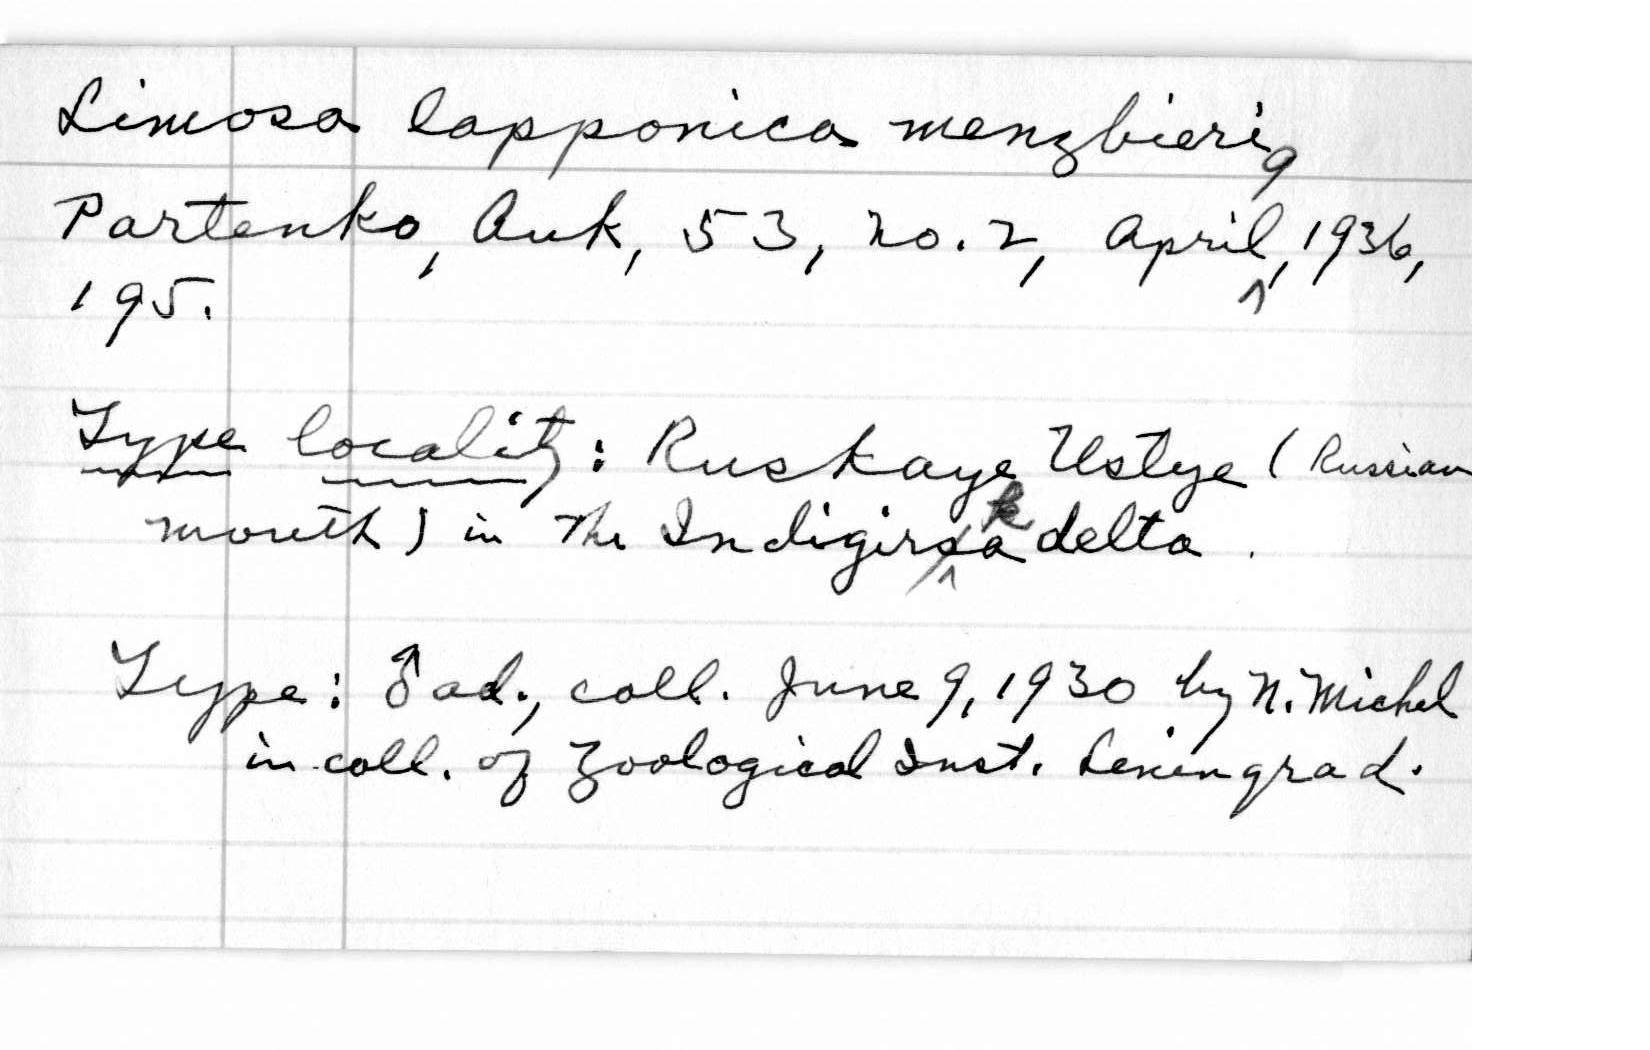 Limosa lapponica menzbieri
Partenko, Auk, 53, no. 2, April 9, 1936,
195.
Type locality: Ruskaye Ustye (Russian
mouth) in the Indigirka delta.
Type: ♂ ad., coll. June 9, 1930 by N. Michel
in coll. of Zoological Inst. Leningrad.